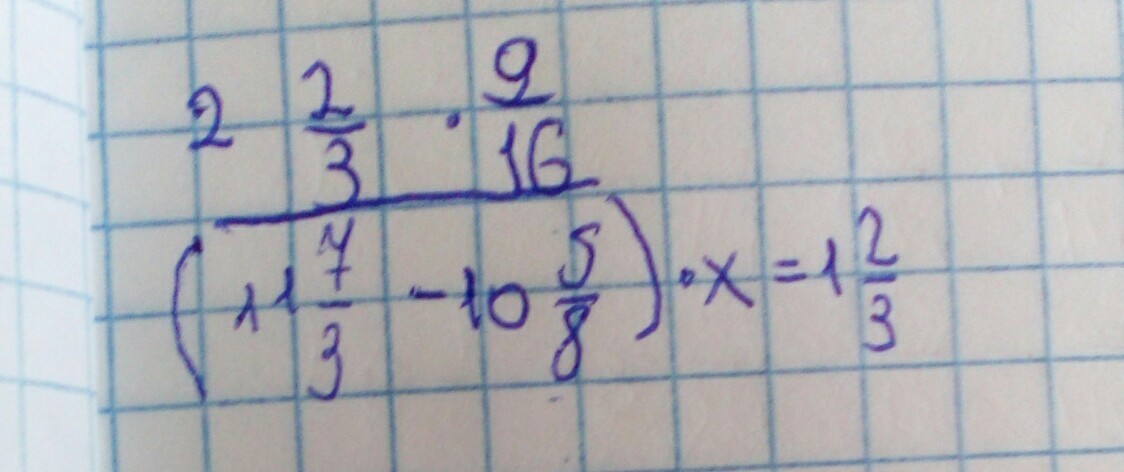 2 2/3 · 9/16
(11 7/3 - 10 5/8) · x = 1 2/3